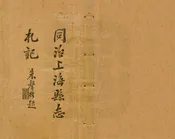 同治上海縣志
札記